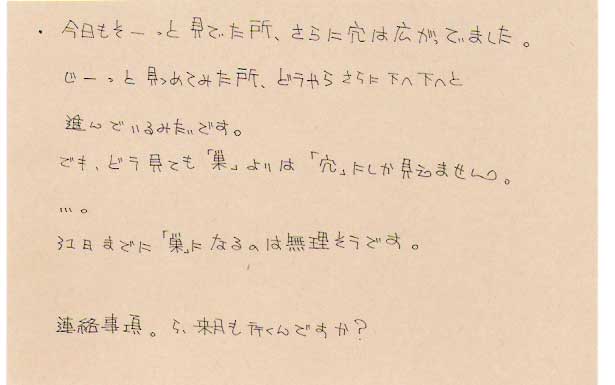 ・今日もそーっと見てた所、さらに穴は広がってました。
じーっと見つめてみた所、どうやらさらに下へ下へと
進んでいるみたいです。
でも、どう見ても「巣」よりは「穴」にしか見えません。
…。
31日までに「巣」になるのは無理そうです。
連絡事項。ら、来月も行くんですか？